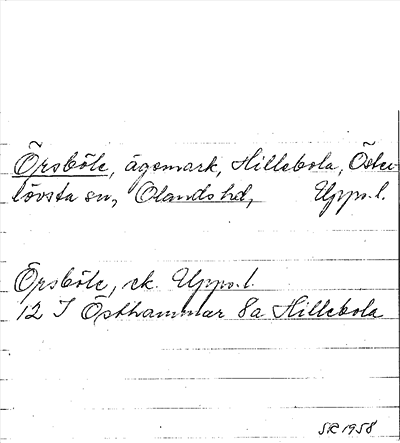 Örsböle, ägomark, Hillebola, Öster-
lövsta sn, Olands hd, Upps. l.
Örsböle, ek. Upps. l.
12 I Östhammar 8a Hillebola
SR 1958